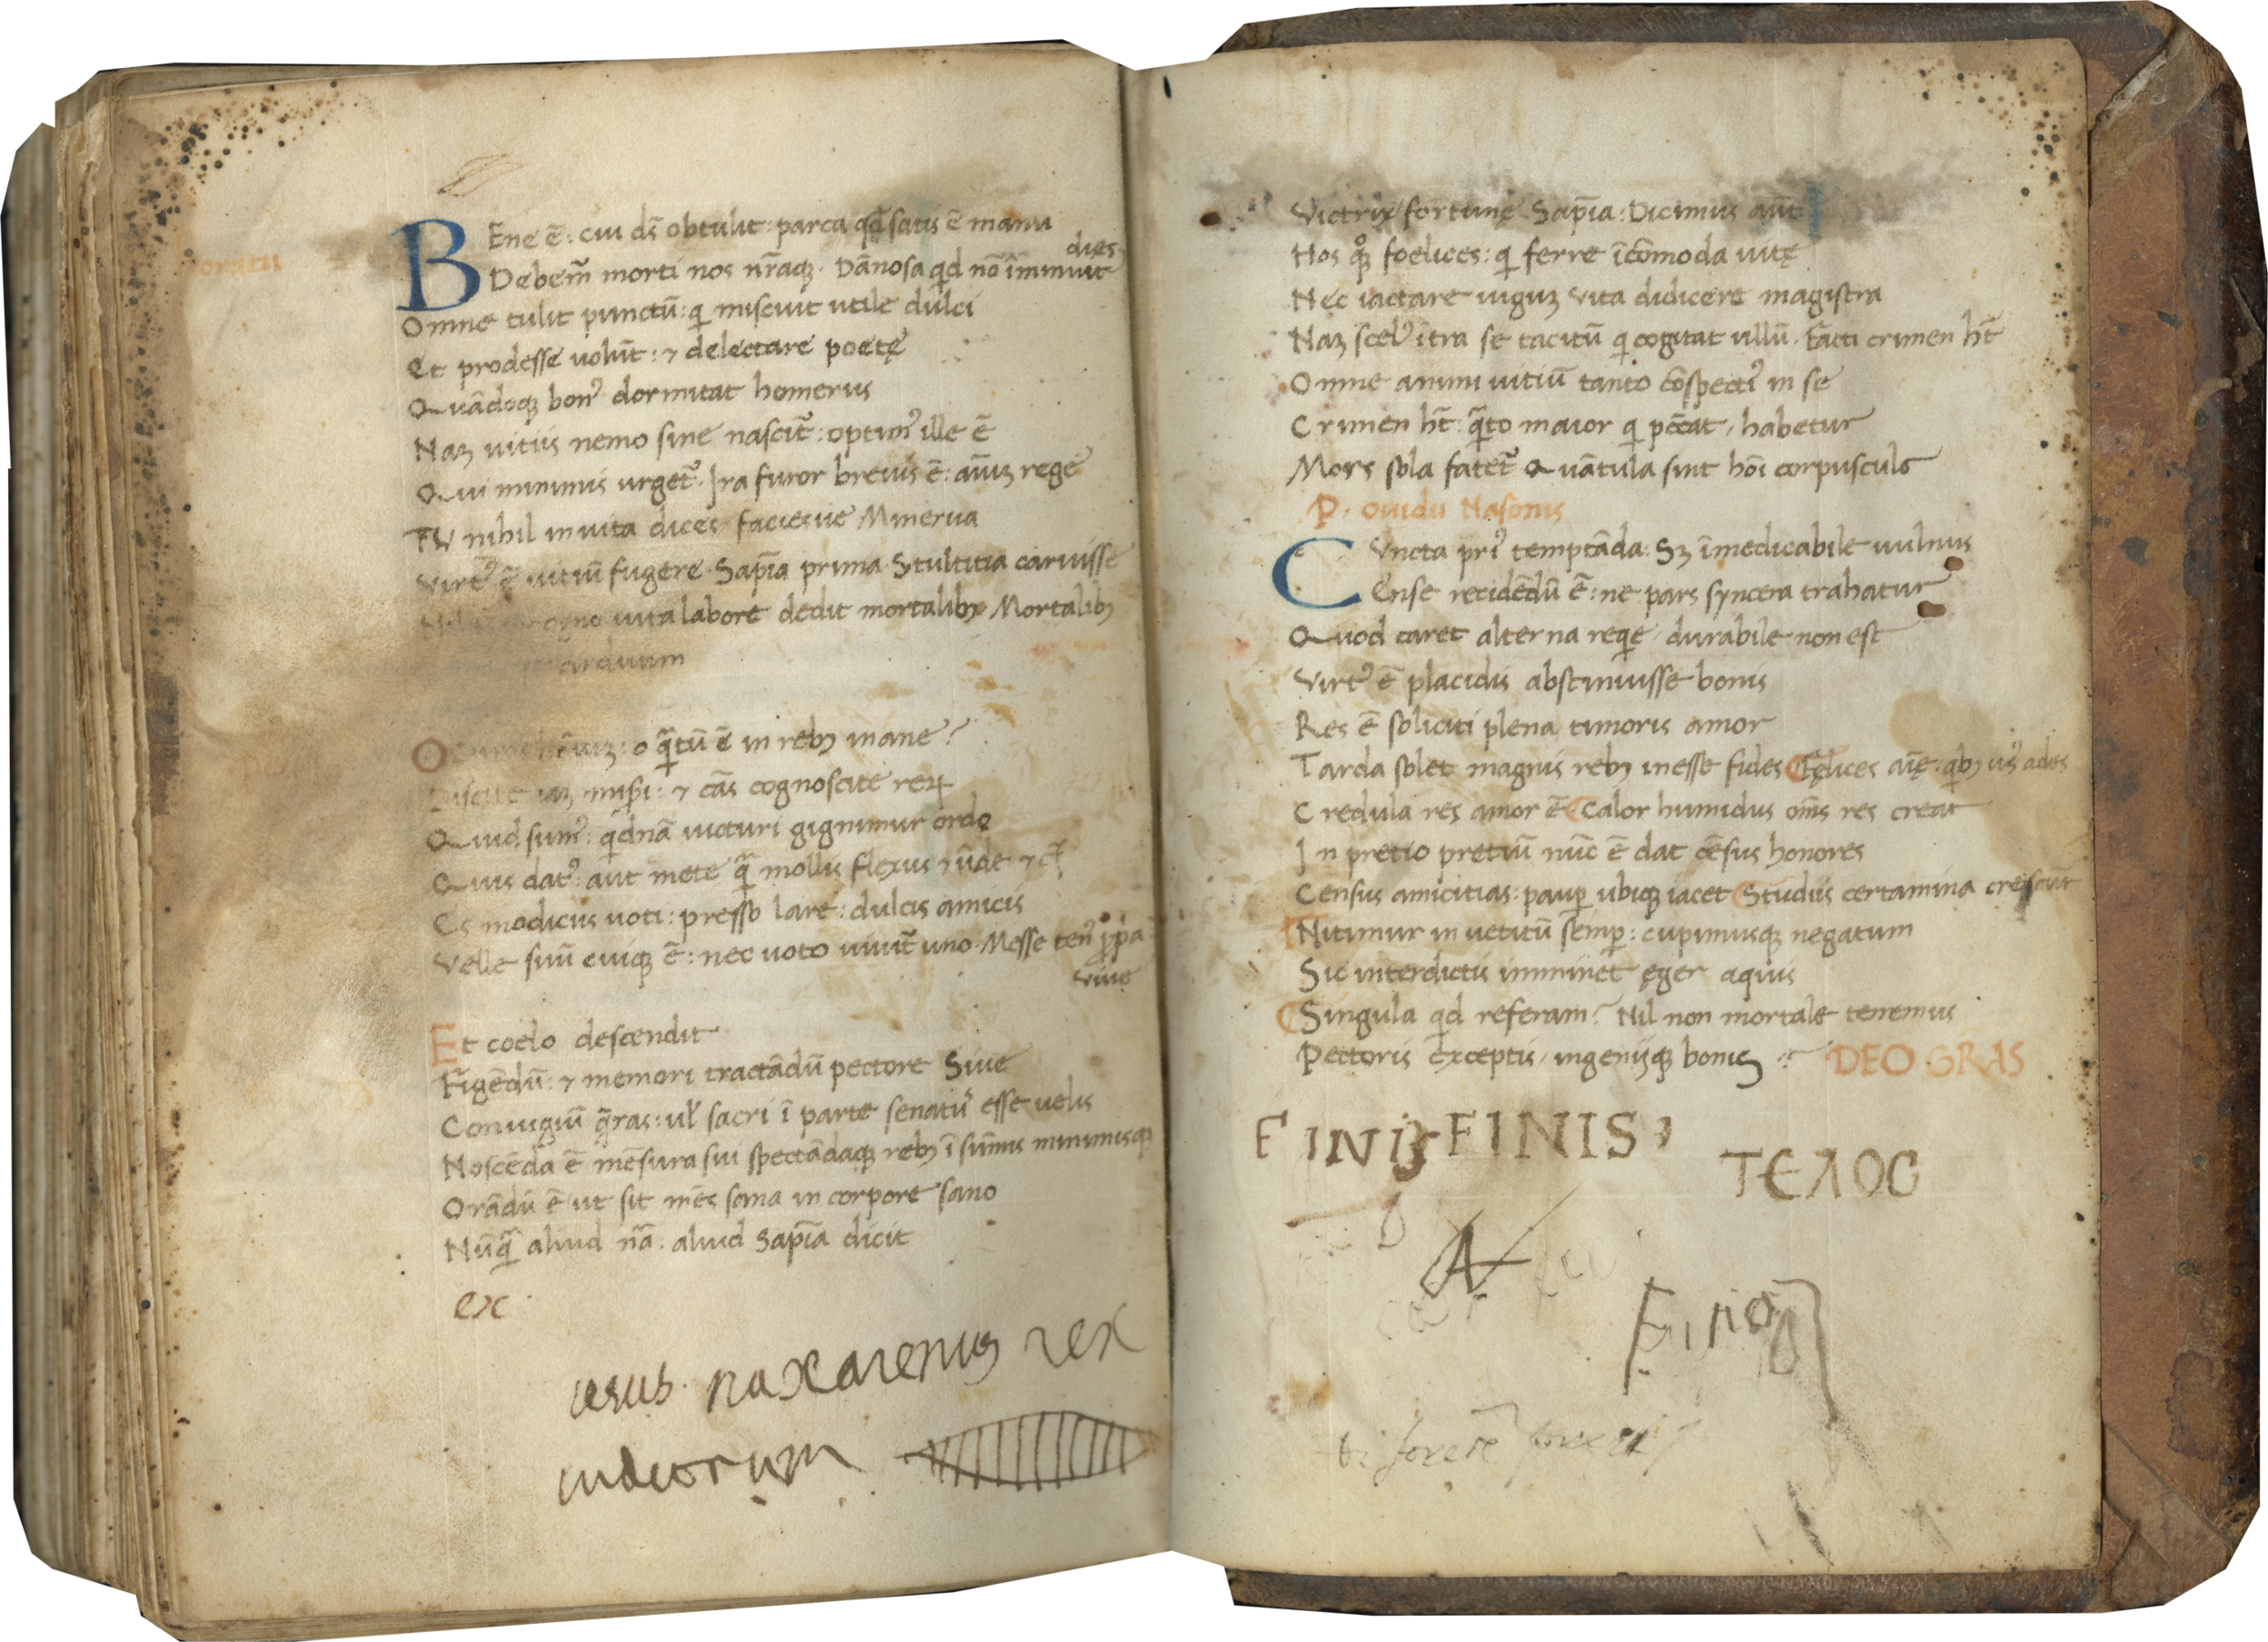 oratii
BEne ē: cui ds̄ obtulit: parca qđ satis ē manu
Debem̄ morti nos nr̄aq̨. Dānosa qid nō īminuit dies
Omne tulit punctū: qi miscuit utile dulci
Et prodesse uolūt: ⁊ delectare poetę
Quādoq̨ bonꝰ dormitat homerus
Naʒ uitiis nemo sine nascit̄: optimꝰ ille ē
Qui minimis urget̄. Ira furor breuis ē: aīuʒ rege
TU nihil inuita dices faciesue Minerua
Virtꝰ ē uitiū fugere. Sapīa prima Stultitia caruisse
uita labore dedit mortalibꝫ Mortalibꝫ
arduum
O qᵃ̄tū ē in rebꝫ inane?
Discite iaʒ mis̄i: ⁊ cās cognoscite reꝝ
Quid sumꝰ: qidnā uicturi gignimur ordo
Quis datꝰ: aut mete qᵃ̄ mollis flexus ⁊ ūde ⁊ c̄
Es modicus uoti: presso lare: dulcis amicis
Velle suū cuiq̨ ē: nec uoto uiuit̄ uno. Messe tenꝰ ꝓp̄a
Viue
Et coelo descendit
Figēdū: ⁊ memori tractādū pectore Siue
Coniugiū q̄ras: ul̄ sacri ī parte senatꝰ esse uelis
Noscēda ē mēsura sui spectādaq̨ rebꝫ ī sūmis minimisq̨
Orādū ē ut sit mēs sana in corpore sano
Nūqᵃ̄ aliud nā. aliud Sapīa dicit
ex
iesus naxarenus rex
iudeorum
Victrix fortunę Sapīa: Dicimus aūt
Hos q̊q̨ foelices: qi ferre īcōmoda uitę
Nec iactare iuguʒ Vita didicere magistra
Naʒ scelꝰ ītra se tacitū qi cogitat ullū. Facti crimen ht̄
Omne animi uitiū tanto cōspectiꝰ in se
Crimen ht̄: qᵃ̄to maior qi pc̄cat, habetur
Mors sola fatet̄ Quātula sint hoī corpuscula
P. Ouidii Nasonis
CVncta priꝰ temptāda: Sʒ īmedicabile uulnus
Ense recidēdū ē: ne pars syncera trahatur
Quod caret alterna reqie, durabile non est
Virtꝰ ē placidis abstinuisse bonis
Res ē soliciti plena timoris amor
Tarda solet magnis rebꝫ inesse fides Fęlices aīę: qibꝫ usꝰ ades
Credula res amor ē Calor humidus oms̄ res creat
In pretio pretiū nūc ē dat cēsus honores
Census amicitias: paup̱ ubiq̨ iacet Studiis certamina crescūt
Nitimur in uetitū semp̱: cupimusq̨ negatum
Sic interdictis imminet ęger aquis
Singula qid referam? Nil non mortale tenemus
Pectoris exceptis, ingeniiq̨ bonis DEO GRAS
FINIS FINIS
ΤΕΛΟC
A